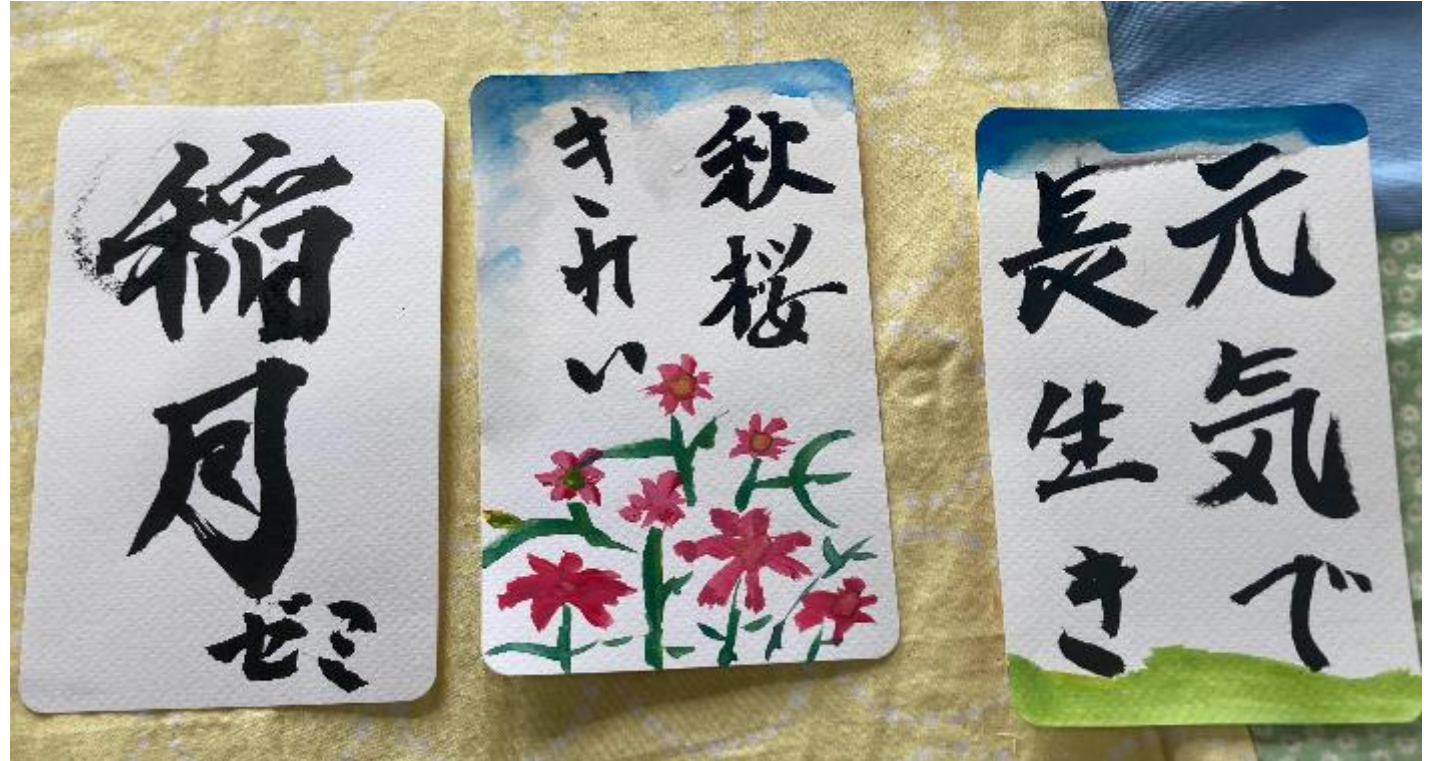 稲月
ゼミ
秋桜
きれい
元気で
長生き